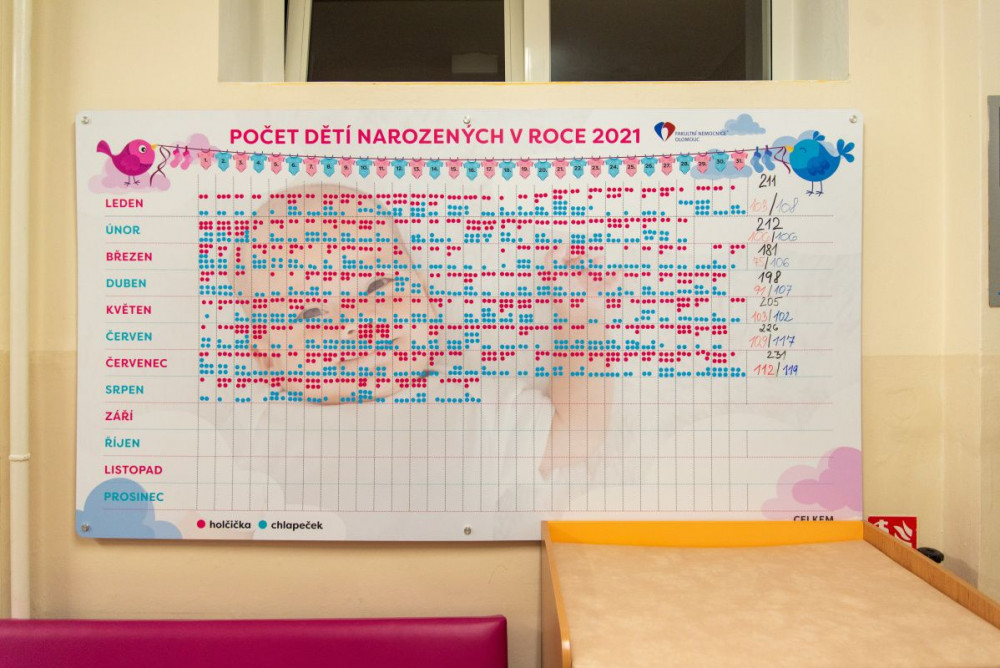 POČET DĚTÍ NAROZENÝCH V ROCE 2021
FAKULTNÍ NEMOCNICE
OLOMOUC
1. 2. 3. 4. 5. 6. 7. 8. 9. 10. 11. 12. 13. 14. 15. 16. 17. 18. 19. 20. 21. 22. 23. 24. 25. 26. 27. 28. 29. 30. 31.
211
LEDEN 103/108
212
ÚNOR 106/106
181
BŘEZEN 75/106
198
DUBEN 91/107
205
KVĚTEN 103/102
226
ČERVEN 109/117
231
ČERVENEC 112/119
SRPEN
ZÁŘÍ
ŘÍJEN
LISTOPAD
PROSINEC
holčička chlapeček
CELKEM